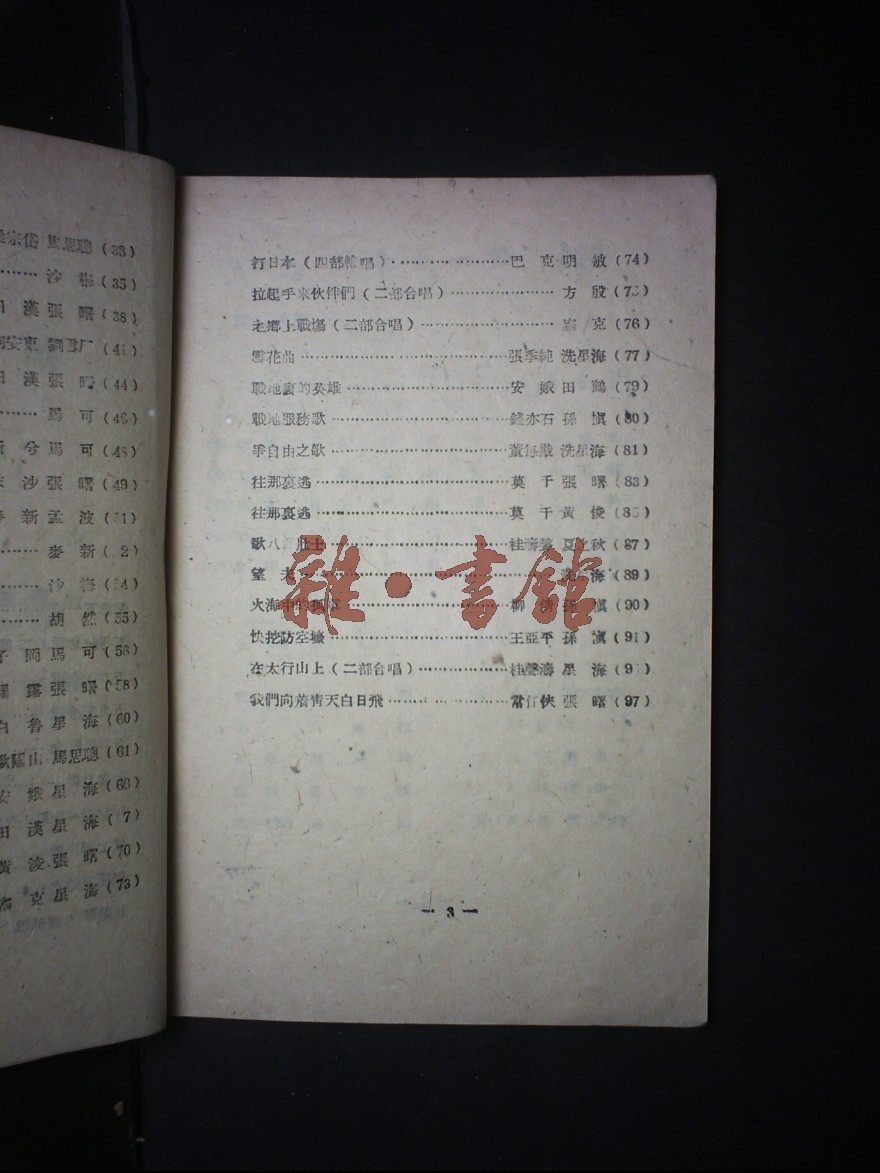 宗岱 馬思聰 (33)
沙 梅 (35)
漢 張 曙 (38)
安東 劉雪厂 (41)
漢 張 曙 (44)
馬 可 (46)
兮 馬 可 (48)
沙 張 曙 (49)
新 孟 波 (51)
麥 新
沙 梅 (54)
胡 然 (55)
岡 馬 可 (56)
露 張 曙 (58)
魯 星 海 (60)
山 馬思聰 (61)
娥 星 海 (66)
田 漢 星 海
黃 凌 張 曙 (70)
克 星 海 (73)
打日本（四部輪唱）…………………巴 克 明 敏 (74)
拉起手來伙伴們（二部合唱）………………方 殷
老鄉上戰場（二部合唱）………………克 (76)
雪花曲………………張季純 洗星海 (77)
戰地裏的英雄………………安 娥 田 鶴 (79)
戰地服務歌………………錢亦石 孫 愼 (80)
爭自由之歌………………董每戡 洗星海 (81)
往那裏逃………………莫 千 張 曙 (83)
往那裏逃………………莫 千 黃 俊
歌八 壯士………………桂濤聲 夏之秋 (87)
望………………海 (89)
火海中的………………柳 倩 孫 愼 (90)
快挖防空壕………………王亞平 孫 愼 (91)
在太行山上（二部合唱）………………桂聲濤 星 海
我們向着靑天白日飛………………常任俠 張 曙 (97)
— 3 —
雜·書館